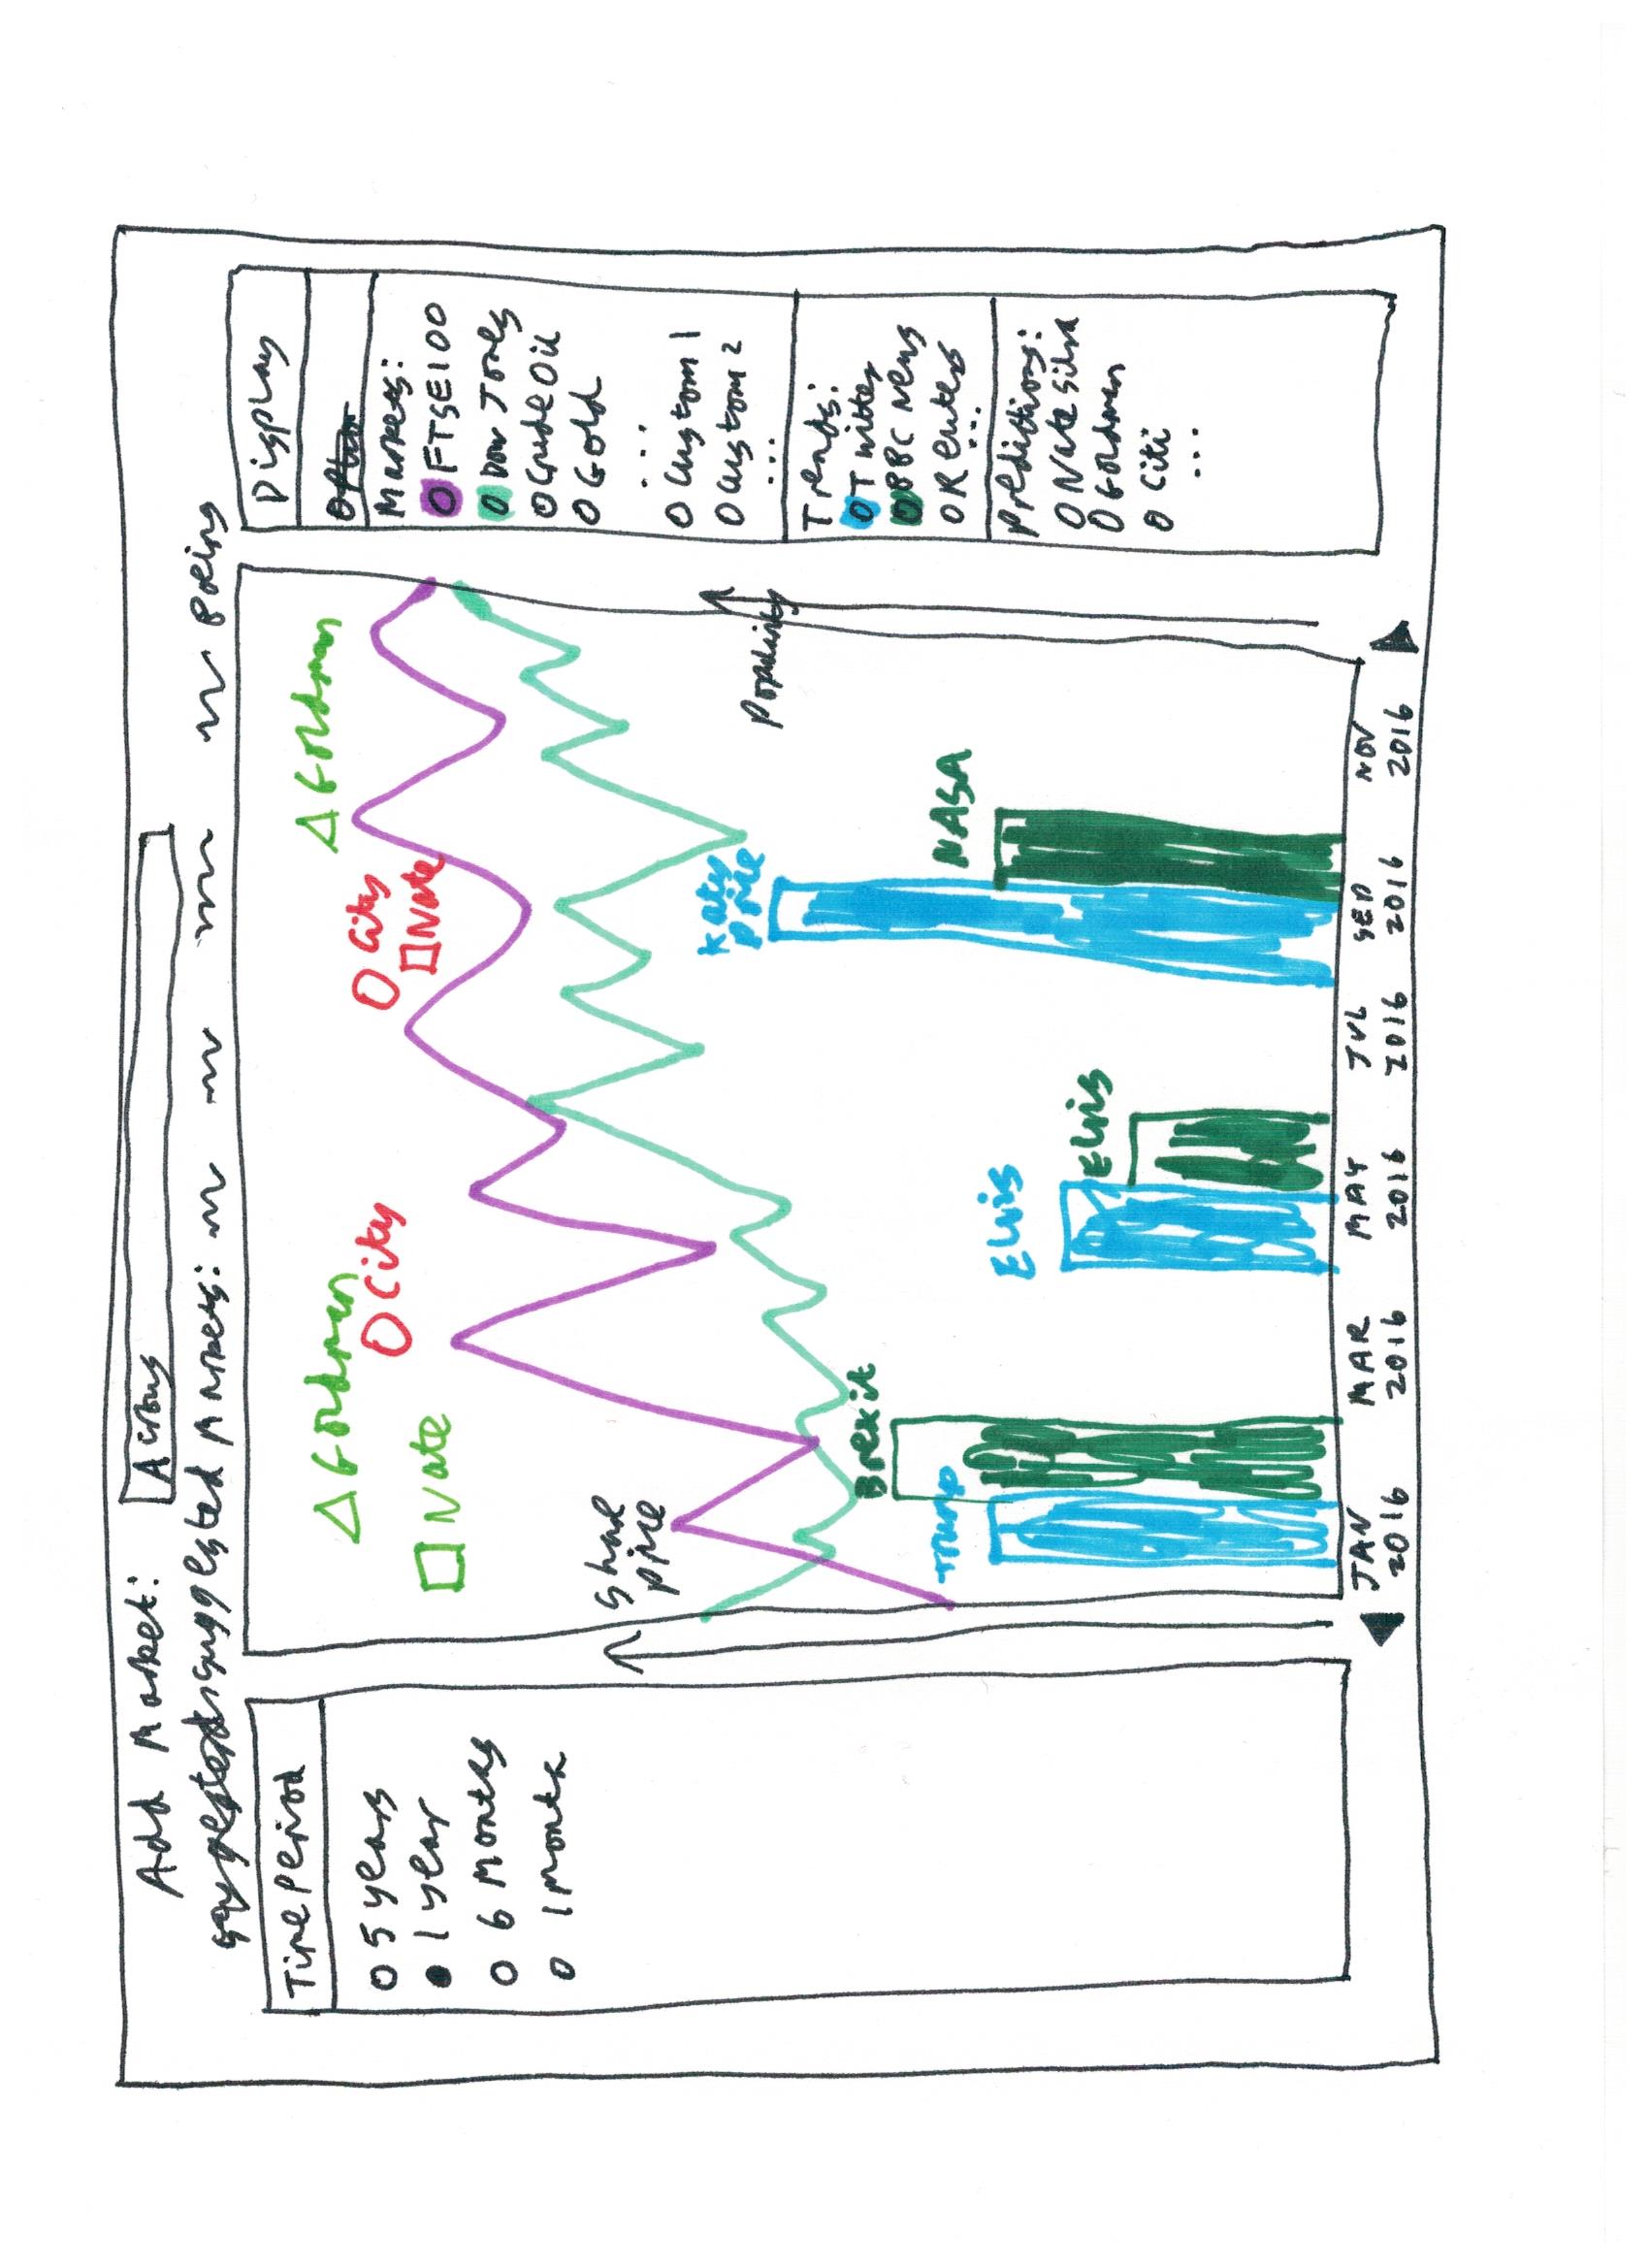 Add Market:
Acrony
suggested Markets:
Boeing
Time period
O 5 years
● 1 year
O 6 Months
O 1 month
Share
price
△ Goldman
□ Nate
O City
O City
□ Nate
△ Goldman
Popularity
Trump
Brexit
Elvis
Elvis
Katy
NASA
JAN
2016
MAR
2016
MAY
2016
JUL
2016
SEP
2016
NOV
2016
Display
Markets:
O FTSE100
O Dow Jones
O Crude Oil
O Gold
...
O Custom 1
O Custom 2
...
Trends:
O Twitter
O BBC News
O Reuters
...
Predictions:
O Nate Silva
O Goldman
O Citi
...